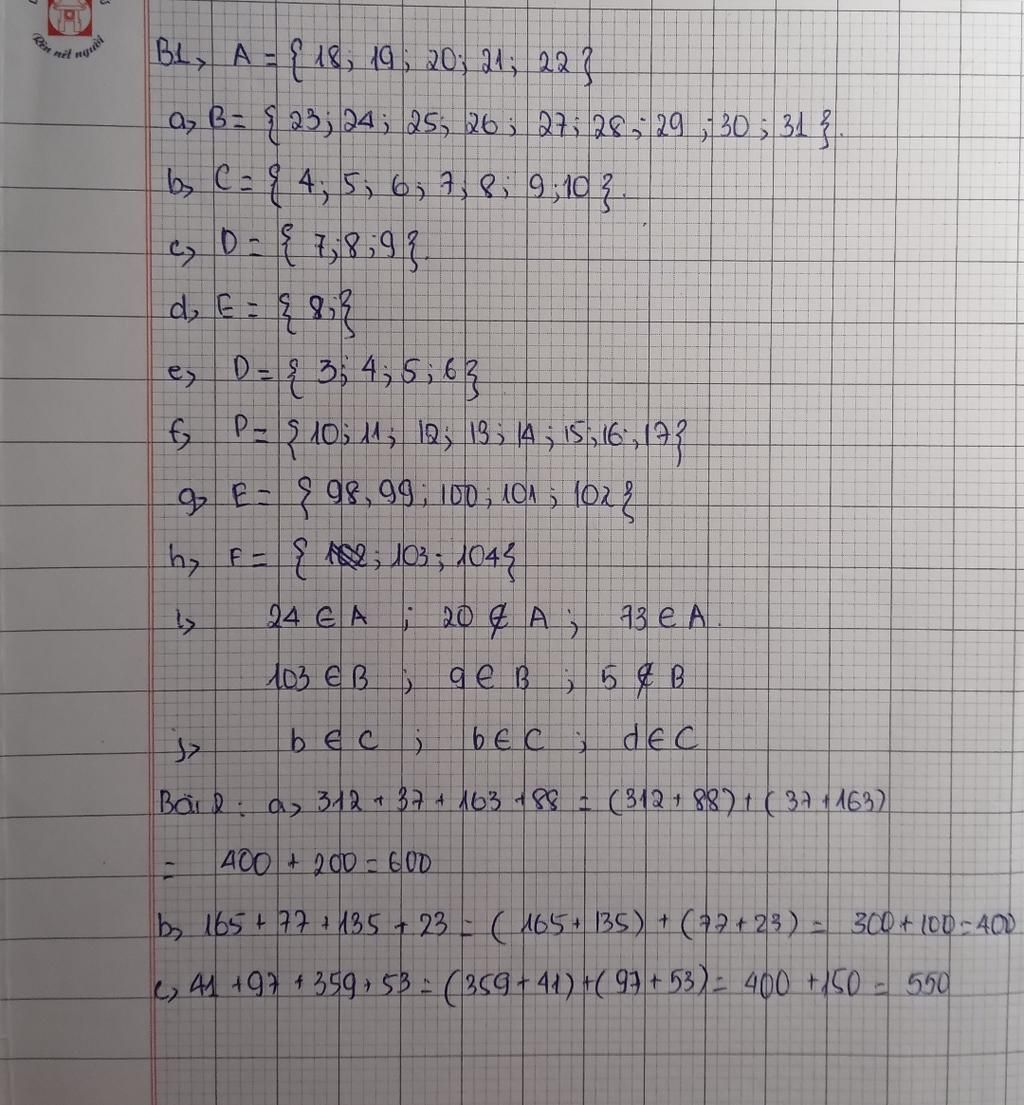 Rèn nết người
B1, A = { 18; 19; 20; 21; 22 }
a, B = { 23; 24; 25; 26; 27; 28; 29; 30; 31 }.
b, C = { 4; 5; 6; 7; 8; 9; 10 }.
c, D = { 7; 8; 9 }.
d, E = { 8; {
e, D = { 3; 4; 5; 6 }
f, P = { 10; 11; 12; 13; 14; 15; 16; 17 }
g, E = { 98, 99; 100; 101; 102 }
h, F = { ; 103; 104 }
i, 24 ∈ A ; 20 ∉ A ; 73 ∈ A.
103 ∈ B ; 9 ∈ B ; 5 ∉ B
j, b ∈ C ; b ∈ C ; d ∈ C
Bài 2: a, 312 + 37 + 163 + 88 = (312 + 88) + (37 + 163)
= 400 + 200 = 600
b, 165 + 77 + 135 + 23 = (165 + 135) + (77 + 23) = 300 + 100 = 400
c, 41 + 97 + 359 + 53 = (359 + 41) + (97 + 53) = 400 + 150 = 550